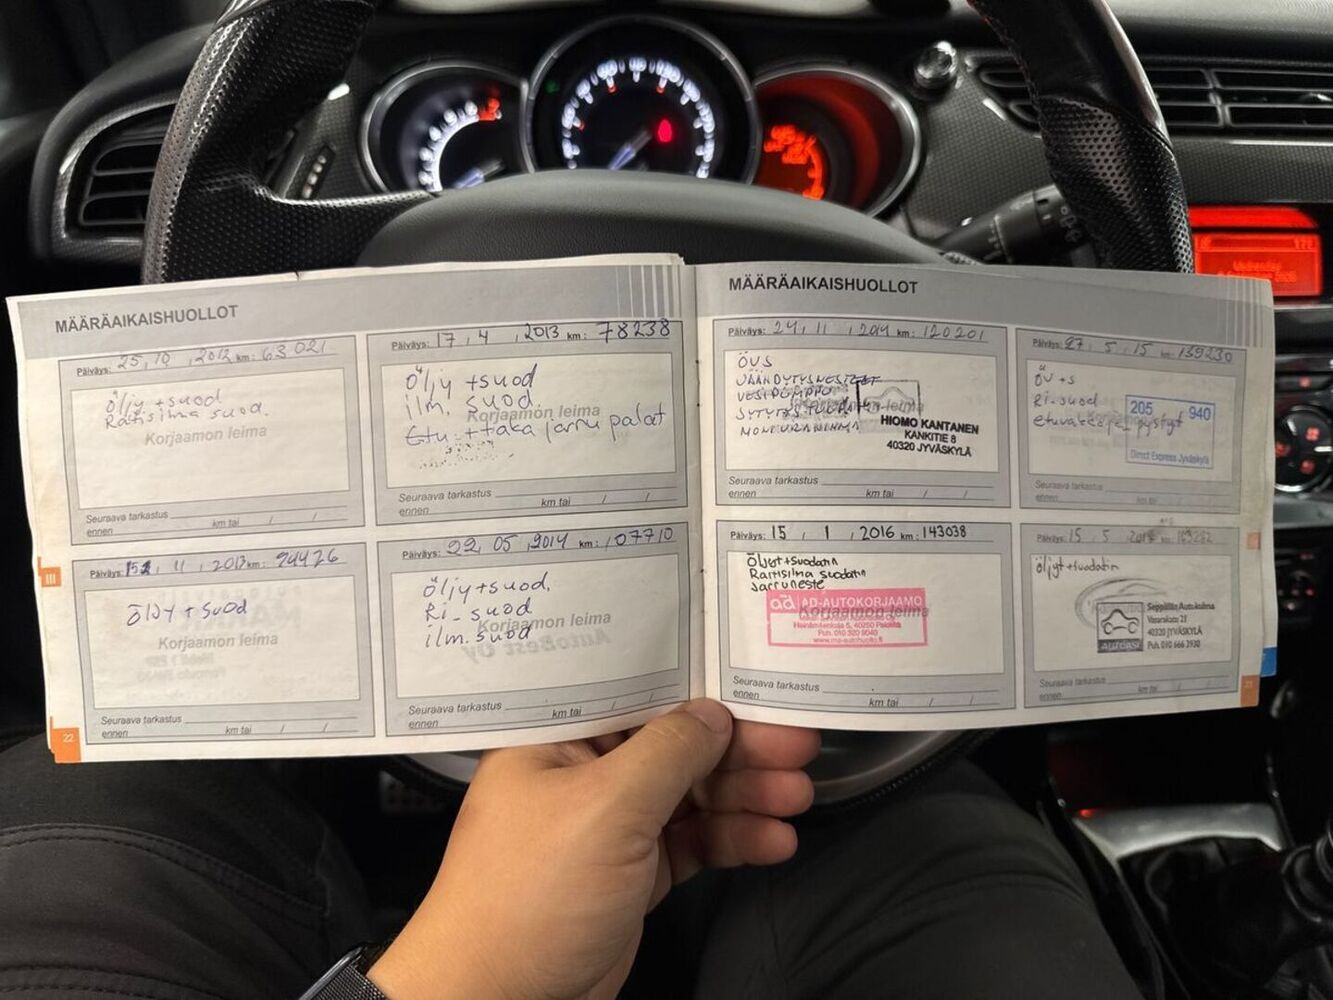 MÄÄRÄAIKAISHUOLLOT
Päiväys: 25, 10, 2012 km: 63 021
Öljy + suod
Raitisilma suod.
Korjaamon leima
Seuraava tarkastus
ennen km tai / /
Päiväys: 17, 4, 2013 km: 78238
Öljy + suod
ilm. suod.
Korjaamon leima
Etu + taka jarru palat
Seuraava tarkastus
ennen km tai / /
Päiväys: 11, 2013 km: 94426
Öljy + suod
Korjaamon leima
Seuraava tarkastus
ennen km tai / /
22
Päiväys: 22, 05, 2014 km: 107710
öljy + suod,
Ri_ suod
Korjaamon leima
ilm. suod
Seuraava tarkastus
ennen km tai / /
III
MÄÄRÄAIKAISHUOLLOT
Päiväys: 24, 11, 2014 km: 120201
ÖVS
VESIPUMPPU
HIOMO KANTANEN
KANKITIE 8
40320 JYVÄSKYLÄ
Seuraava tarkastus
ennen km tai / /
Päiväys: 27, 5, 15 km: 139230
ÖV + S
Ri. suod
205 940
Direct Express Jyväskylä
Seuraava tarkastus
ennen km tai / /
Päiväys: 15, 1, 2016 km: 143038
Öljyt + suodatin
Raitisilma suodatin
Jarruneste
ad AD-AUTOKORJAAMO
Korjaamon leima
Puh. 010 320 9040
Seuraava tarkastus
ennen km tai / /
Päiväys: 15, 5
öljyt + suodatin
Seppälän Autokulma
Vasarakatu 23
40320 JYVÄSKYLÄ
Puh. 010 666 3930
AUTOASI
Seuraava tarkastus
ennen km tai / /